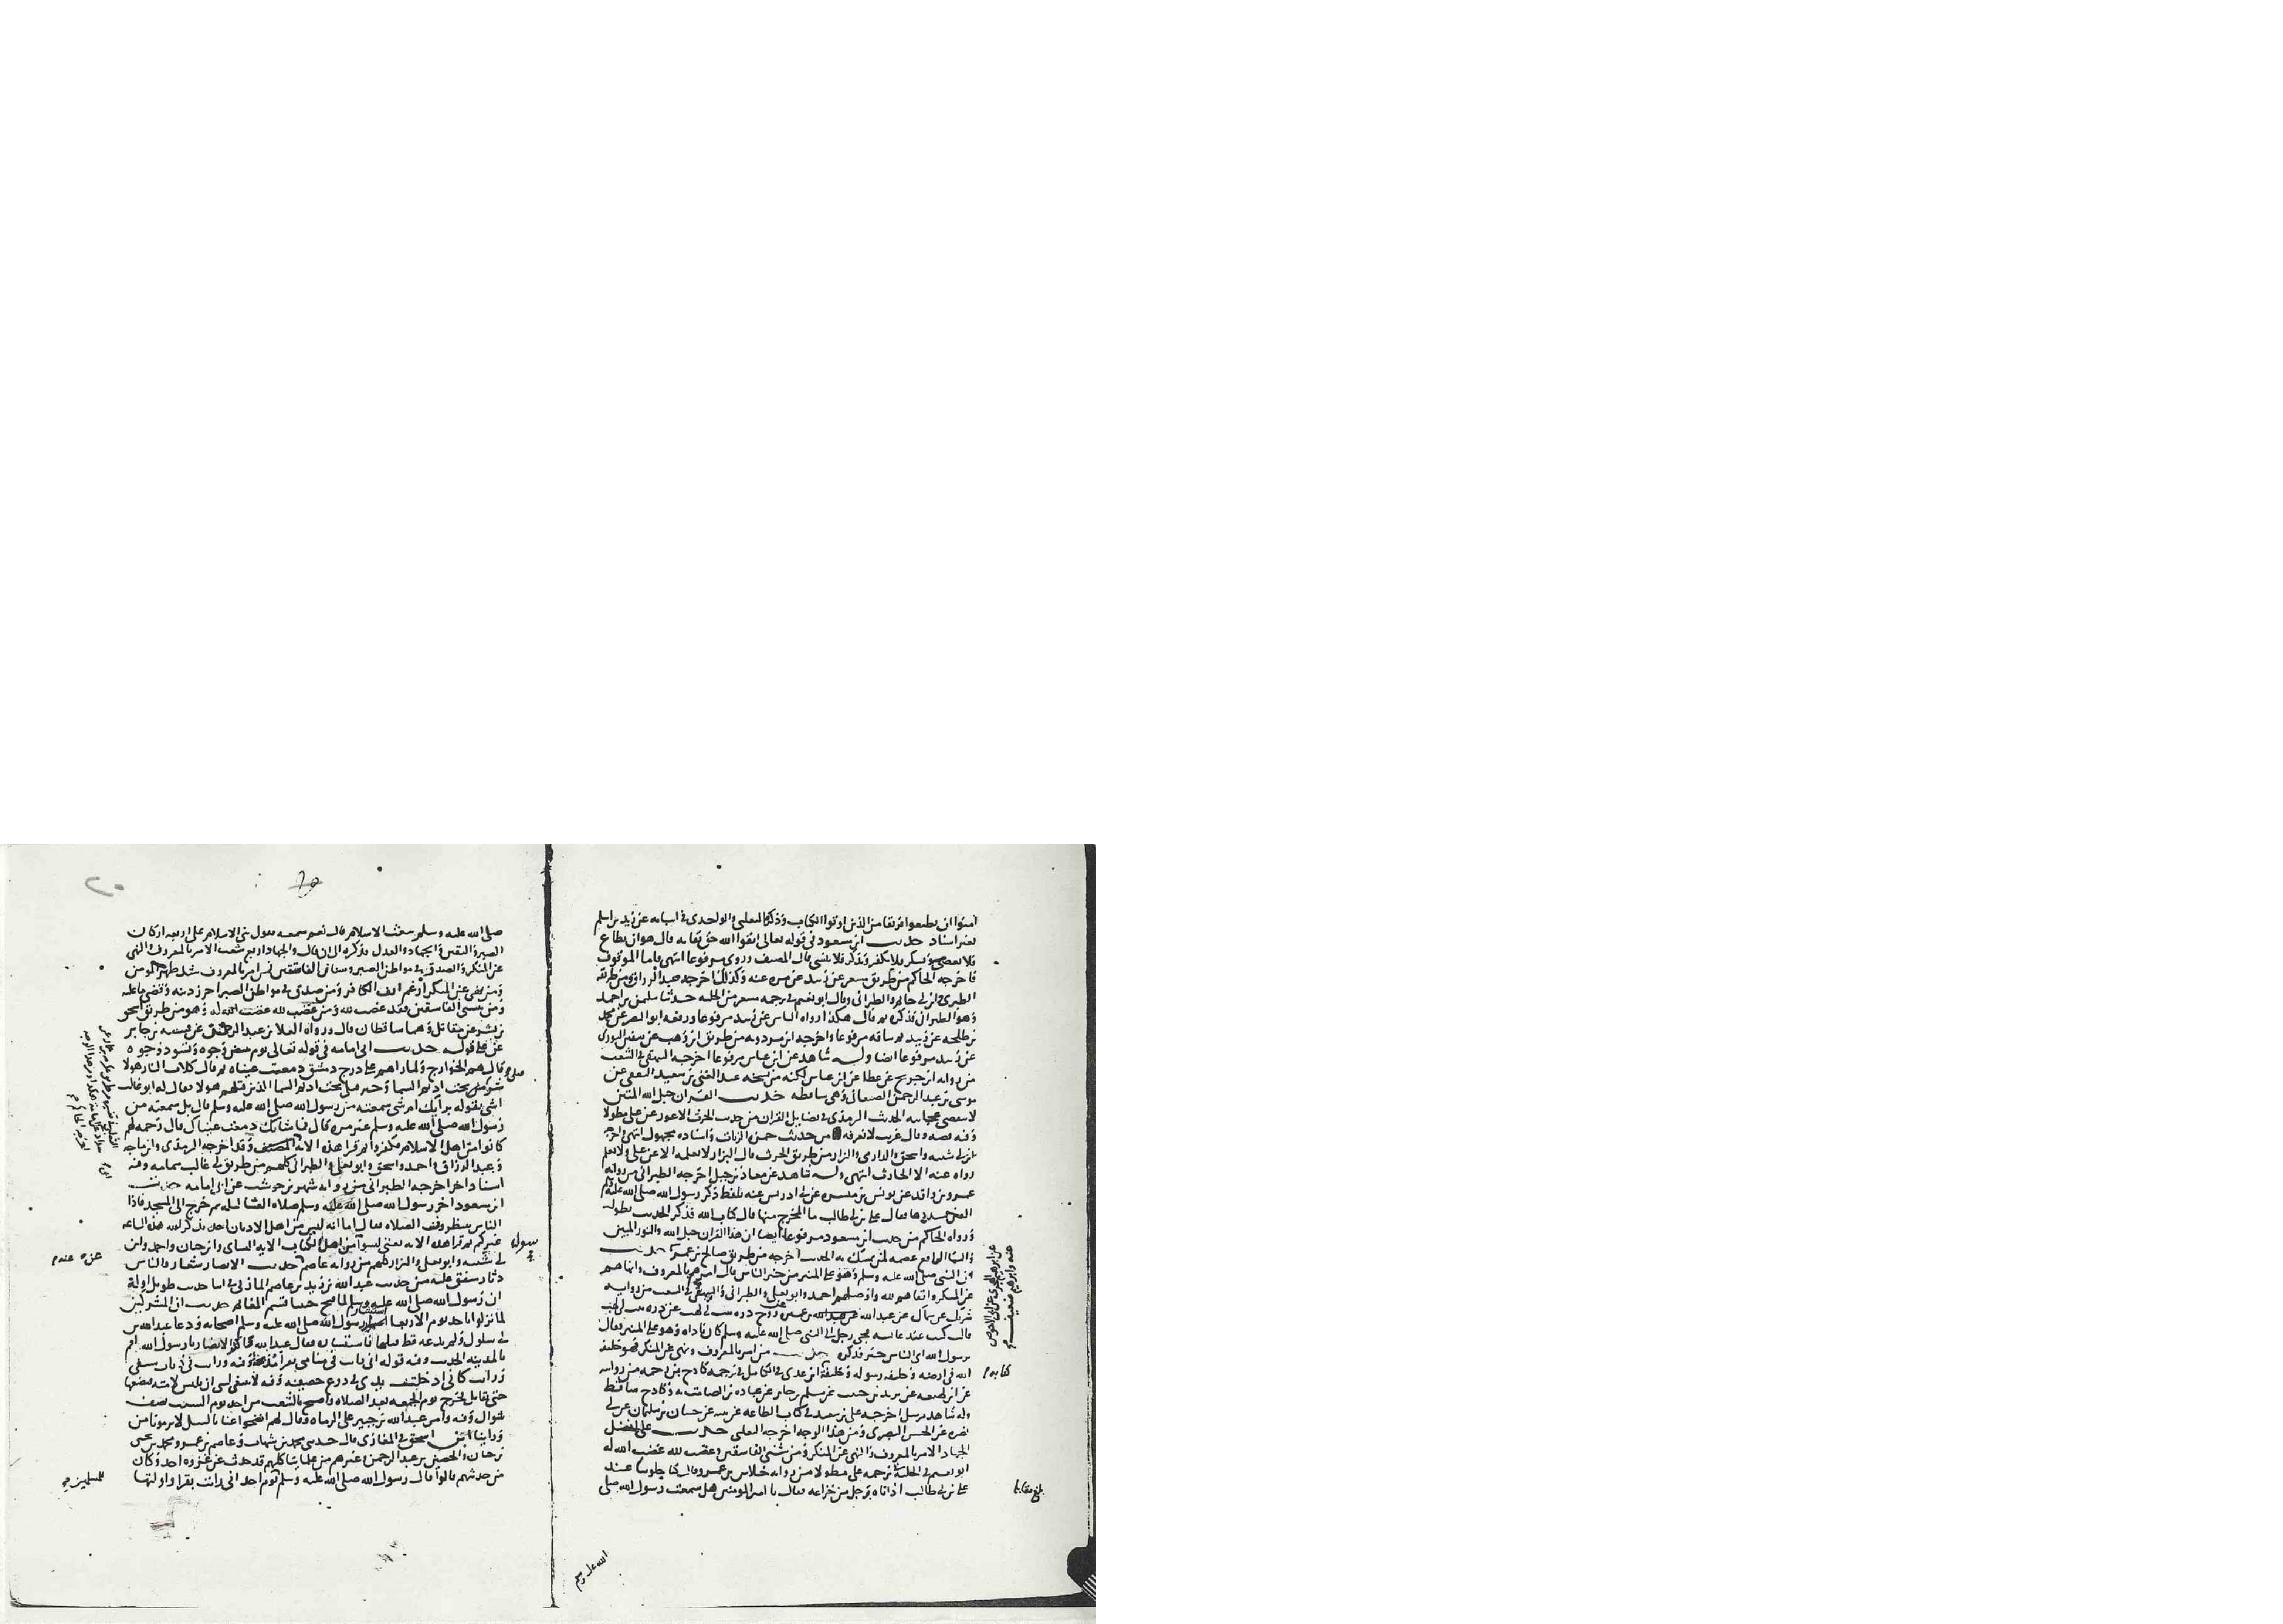 آمنوا ان تطيعوا فريقا من الذين اوتوا الكتاب وذكره الثعلبي والواحدي في اسبابه عن زيد بن اسلم
بغير اسناد حديث ابن مسعود في قوله تعالى اتقوا الله حق تقاته قال هو ان يطاع
فلا يعصى ويشكر فلا يكفر ويذكر فلا ينسى قال المصنف وروي مرفوعا انتهى فاما الموقوف
فاخرجه الحاكم من طريق مسعر عن زبيد عن مره عنه وكذلك اخرجه عبد الرزاق ومن طريقه
الطبري وابن ابي حاتم والطبراني وقال ابو نعيم في ترجمه مسعر من الحليه حدثنا سليمن بن احمد
وهو الطبراني فذكره ثم قال هكذا رواه الناس عن زبيد مرفوعا ورفعه ابو النضر عن محمد
بن طلحه عن زبيد ثم ساقه مرفوعا واخرجه ابن مردويه من طريق ابن وهب عن سفين الثوري
عن زبيد مرفوعا ايضا وله شاهد عن ابن عباس مرفوعا اخرجه البيهقي في الشعب
من روايه ابن جريج عن عطا عن ابن عباس لكنه من نسخه عبد الغني بن سعيد الثقفي عن
موسى بن عبد الرحمن الصنعاني وهي ساقطه حديث القران حبل الله المتين
لا تنقضي عجايبه الحديث الترمذي في فضايل القران من حديث الحرث الاعور عن علي مطولا
وفيه قصه وقال غريب لا نعرفه من حديث حمزه الزيات واسناده مجهول انتهى واخرجه
ابن ابي شيبه واسحق والدارمي والبزار من طريق الحرث قال البزار لا نعلمه الا عن علي ولا نعلم
رواه عنه الا الحارث انتهى وله شاهد عن معاذ بن جبل اخرجه الطبراني من روايه
عمرو بن واقد عن يونس بن ميسره عن ابي ادريس عنه بلفظ ذكر رسول الله صلى الله عليه وسلم
الفتن فقال علي بن ابي طالب ما المخرج منها قال كتاب الله فذكر الحديث بطوله
ورواه الحاكم من حديث ابن مسعود مرفوعا ايضا ان هذا القران حبل الله والنور المبين
والشفا النافع عصمه لمن تمسك به الحديث اخرجه من طريق صالح بن عمر حديث
ان النبي صلى الله عليه وسلم وهو على المنبر من خير الناس قال امرهم بالمعروف وانهاهم
عن المنكر واتقاهم لله واوصلهم احمد وابو يعلى والطبراني والبيهقي في الشعب من روايه
شريك عن سماك عن عبد الله بن عميره زوج دره بنت ابي لهب عن دره بنت ابي لهب
قالت كنت عند عايشه فجي رجل الى النبي صلى الله عليه وسلم وهو على المنبر فقال
يا رسول الله اي الناس خير فذكره حديث من امر بالمعروف ونهى عن المنكر فهو خليفه
الله في ارضه وخليفه رسوله وخليفه ابن عدي في الكامل في ترجمه كادح بن رحمه من روايته
عن ابن لهيعه عن يزيد بن حبيب عن مسلم بن جابر عن عباده بن الصامت به وكادح ساقط
وله شاهد مرسل اخرجه علي بن معبد في كتاب الطاعه عن بقيه عن حسان بن سليمان عن ابي
نضره عن الحسن البصري ومن هذا الوجه اخرجه الثعلبي حديث علي افضل
الجهاد الامر بالمعروف والنهي عن المنكر ومن شنئ الفاسقين وغضب لله غضب الله له
ابو نعيم في الحليه في ترجمه علي مطولا من روايه خلاس بن عمرو قال كنا جلوسا عند
علي بن ابي طالب اذ اتاه رجل من خزاعه فقال يا امير المومنين هل سمعت رسول الله صلى
عن ابراهيم الهجري عن ابي الاحوص
عنه وابراهيم ضعيف
كتابه
بلغ مقابله
الله عليه وسلم
صلى الله عليه وسلم ينعت الاسلام قال نعم سمعته يقول بني الاسلام على اربعه اركان
الصبر واليقين والجهاد والعدل فذكره الى ان قال والجهاد اربع شعب الامر بالمعروف والنهي
عن المنكر والصدق في مواطن الصبر وشنان الفاسقين فمن امر بالمعروف شد ظهر المومن
ومن نهى عن المنكر ارغم انف الكافر ومن صدق في مواطن الصبر احرز دينه وقضى ما عليه
ومن شنئ الفاسقين فقد غضب لله ومن غضب لله غضب الله له وهو من طريق اسحق
بن بشر عن مقاتل وهما ساقطان قال ورواه العلا بن عبد الرحمن عن قبيصه بن جابر
عن علي قوله حديث ابي امامه في قوله تعالى يوم تبيض وجوه وتسود وجوه
قال هم الخوارج ولما راهم على درج دمشق دمعت عيناه ثم قال كلاب النار هولا
شر قتلى تحت اديم السما وخير قتلى تحت اديم السما الذين قتلهم هولا فقال له ابو غالب
اشي تقوله برايك ام شي سمعته من رسول الله صلى الله عليه وسلم قال بل سمعته من
رسول الله صلى الله عليه وسلم غير مره قال فما شانك دمعت عيناك قال رحمه لهم
كانوا من اهل الاسلام فكفروا ثم قرا هذه الايه المصنف وقد اخرجه الترمذي وابن ماجه
وعبد الرزاق واحمد واسحق وابو يعلى والطبراني كلهم من طريق ابي غالب بتمامه وفيه
اسناد اخر اخرجه الطبراني من روايه شهر بن حوشب عن ابي امامه حديث
ابن مسعود اخر رسول الله صلى الله عليه وسلم صلاه العشا ليله ثم خرج الى المسجد فاذا
الناس ينتظرون الصلاه فقال اما انه ليس من اهل الاديان احد يذكر الله هذه الساعه
غيركم ثم قرا هذه الايه يعني ليسوا سوا من اهل الكتاب الايه النساي وابن حبان واحمد وابن
ابي شيبه وابو يعلى والبزار كلهم من روايه عاصم حديث الانصار شعار والناس
دثار متفق عليه من حديث عبد الله بن زيد بن عاصم المازني في اثنا حديث طويل اوله
ان رسول الله صلى الله عليه وسلم لما فتح حنينا قسم الغنايم حديث ان المشركين
لما نزلوا باحد يوم الاربعا استشار رسول الله صلى الله عليه وسلم اصحابه ودعا عبد الله بن
ابي سلول ولم يدعه قط قبلها فاستشاره فقال عبد الله واكثر الانصار يا رسول الله اقم
بالمدينه الحديث وفيه قوله اني رايت في منامي بقرا مذبحه وفيه ورايت في ذباب سيفي
ورايت كاني ادخلت يدي في درع حصينه وفيه لا ينبغي لنبي ان يلبس لامته فيضعها
حتى يقاتل فخرج يوم الجمعه بعد الصلاه واصبح بالشعب من احد يوم السبت نصف
شوال وفيه وامر عبد الله بن جبير على الرماه وقال لهم انضحوا عنا بالنبل لا يرمونا من
وراينا ابن اسحق في المغازي قال حدثني محمد بن شهاب وعاصم بن عمر ومحمد بن يحيى
بن حبان والحصين بن عبد الرحمن وغيرهم من علماينا كلهم قد حدث عن غزوه احد وكان
من حديثهم قالوا قال رسول الله صلى الله عليه وسلم يوم احد اني رايت بقرا واولتها
اخرجه الحاكم
رسول
عنده
للمسلمين